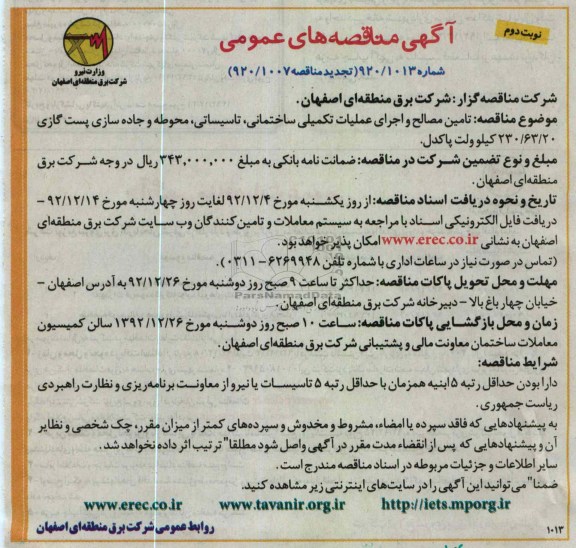 نوبت دوم
آگهی مناقصه‌های عمومی
شماره ۹۲۰/۱۰۱۳ (تجدید مناقصه ۹۲۰/۱۰۰۷)
وزارت نیرو
شرکت برق منطقه‌ای اصفهان
شرکت مناقصه گزار: شرکت برق منطقه‌ای اصفهان.
موضوع مناقصه: تامین مصالح و اجرای عملیات تکمیلی ساختمانی، تاسیساتی، محوطه و جاده سازی پست گازی
۲۳۰/۶۳/۲۰ کیلو ولت پاکدل.
مبلغ و نوع تضمین شرکت در مناقصه: ضمانت نامه بانکی به مبلغ ۳۴۳,۰۰۰,۰۰۰ ریال در وجه شرکت برق
منطقه‌ای اصفهان.
تاریخ و نحوه دریافت اسناد مناقصه: از روز یکشنبه مورخ ۹۲/۱۲/۴ لغایت روز چهارشنبه مورخ ۹۲/۱۲/۱۴ –
دریافت فایل الکترونیکی اسناد با مراجعه به سیستم معاملات و تامین کنندگان وب سایت شرکت برق منطقه‌ای
اصفهان به نشانی www.erec.co.ir امکان پذیر خواهد بود.
(تماس در صورت نیاز در ساعات اداری با شماره تلفن ۶۲۶۹۹۴۸-۰۳۱۱).
مهلت و محل تحویل پاکات مناقصه: حداکثر تا ساعت ۹ صبح روز دوشنبه مورخ ۹۲/۱۲/۲۶ به آدرس اصفهان –
خیابان چهار باغ بالا – دبیرخانه شرکت برق منطقه‌ای اصفهان.
ParsNamadData
زمان و محل بازگشایی پاکات مناقصه: ساعت ۱۰ صبح روز دوشنبه مورخ ۱۳۹۲/۱۲/۲۶ سالن کمیسیون
معاملات ساختمان معاونت مالی و پشتیبانی شرکت برق منطقه‌ای اصفهان.
شرایط مناقصه:
دارا بودن حداقل رتبه ۵ ابنیه همزمان با حداقل رتبه ۵ تاسیسات یا نیرو از معاونت برنامه‌ریزی و نظارت راهبردی
ریاست جمهوری.
به پیشنهادهایی که فاقد سپرده یا امضاء، مشروط و مخدوش و سپرده‌های کمتر از میزان مقرر، چک شخصی و نظایر
آن و پیشنهادهایی که پس از انقضاء مدت مقرر در آگهی واصل شود مطلقا" ترتیب اثر داده نخواهد شد.
سایر اطلاعات و جزئیات مربوطه در اسناد مناقصه مندرج است.
ضمنا" می‌توانید این آگهی را در سایت‌های اینترنتی زیر مشاهده کنید.
www.erec.co.ir www.tavanir.org.ir http://iets.mporg.ir
روابط عمومی شرکت برق منطقه‌ای اصفهان
۱۰۱۳